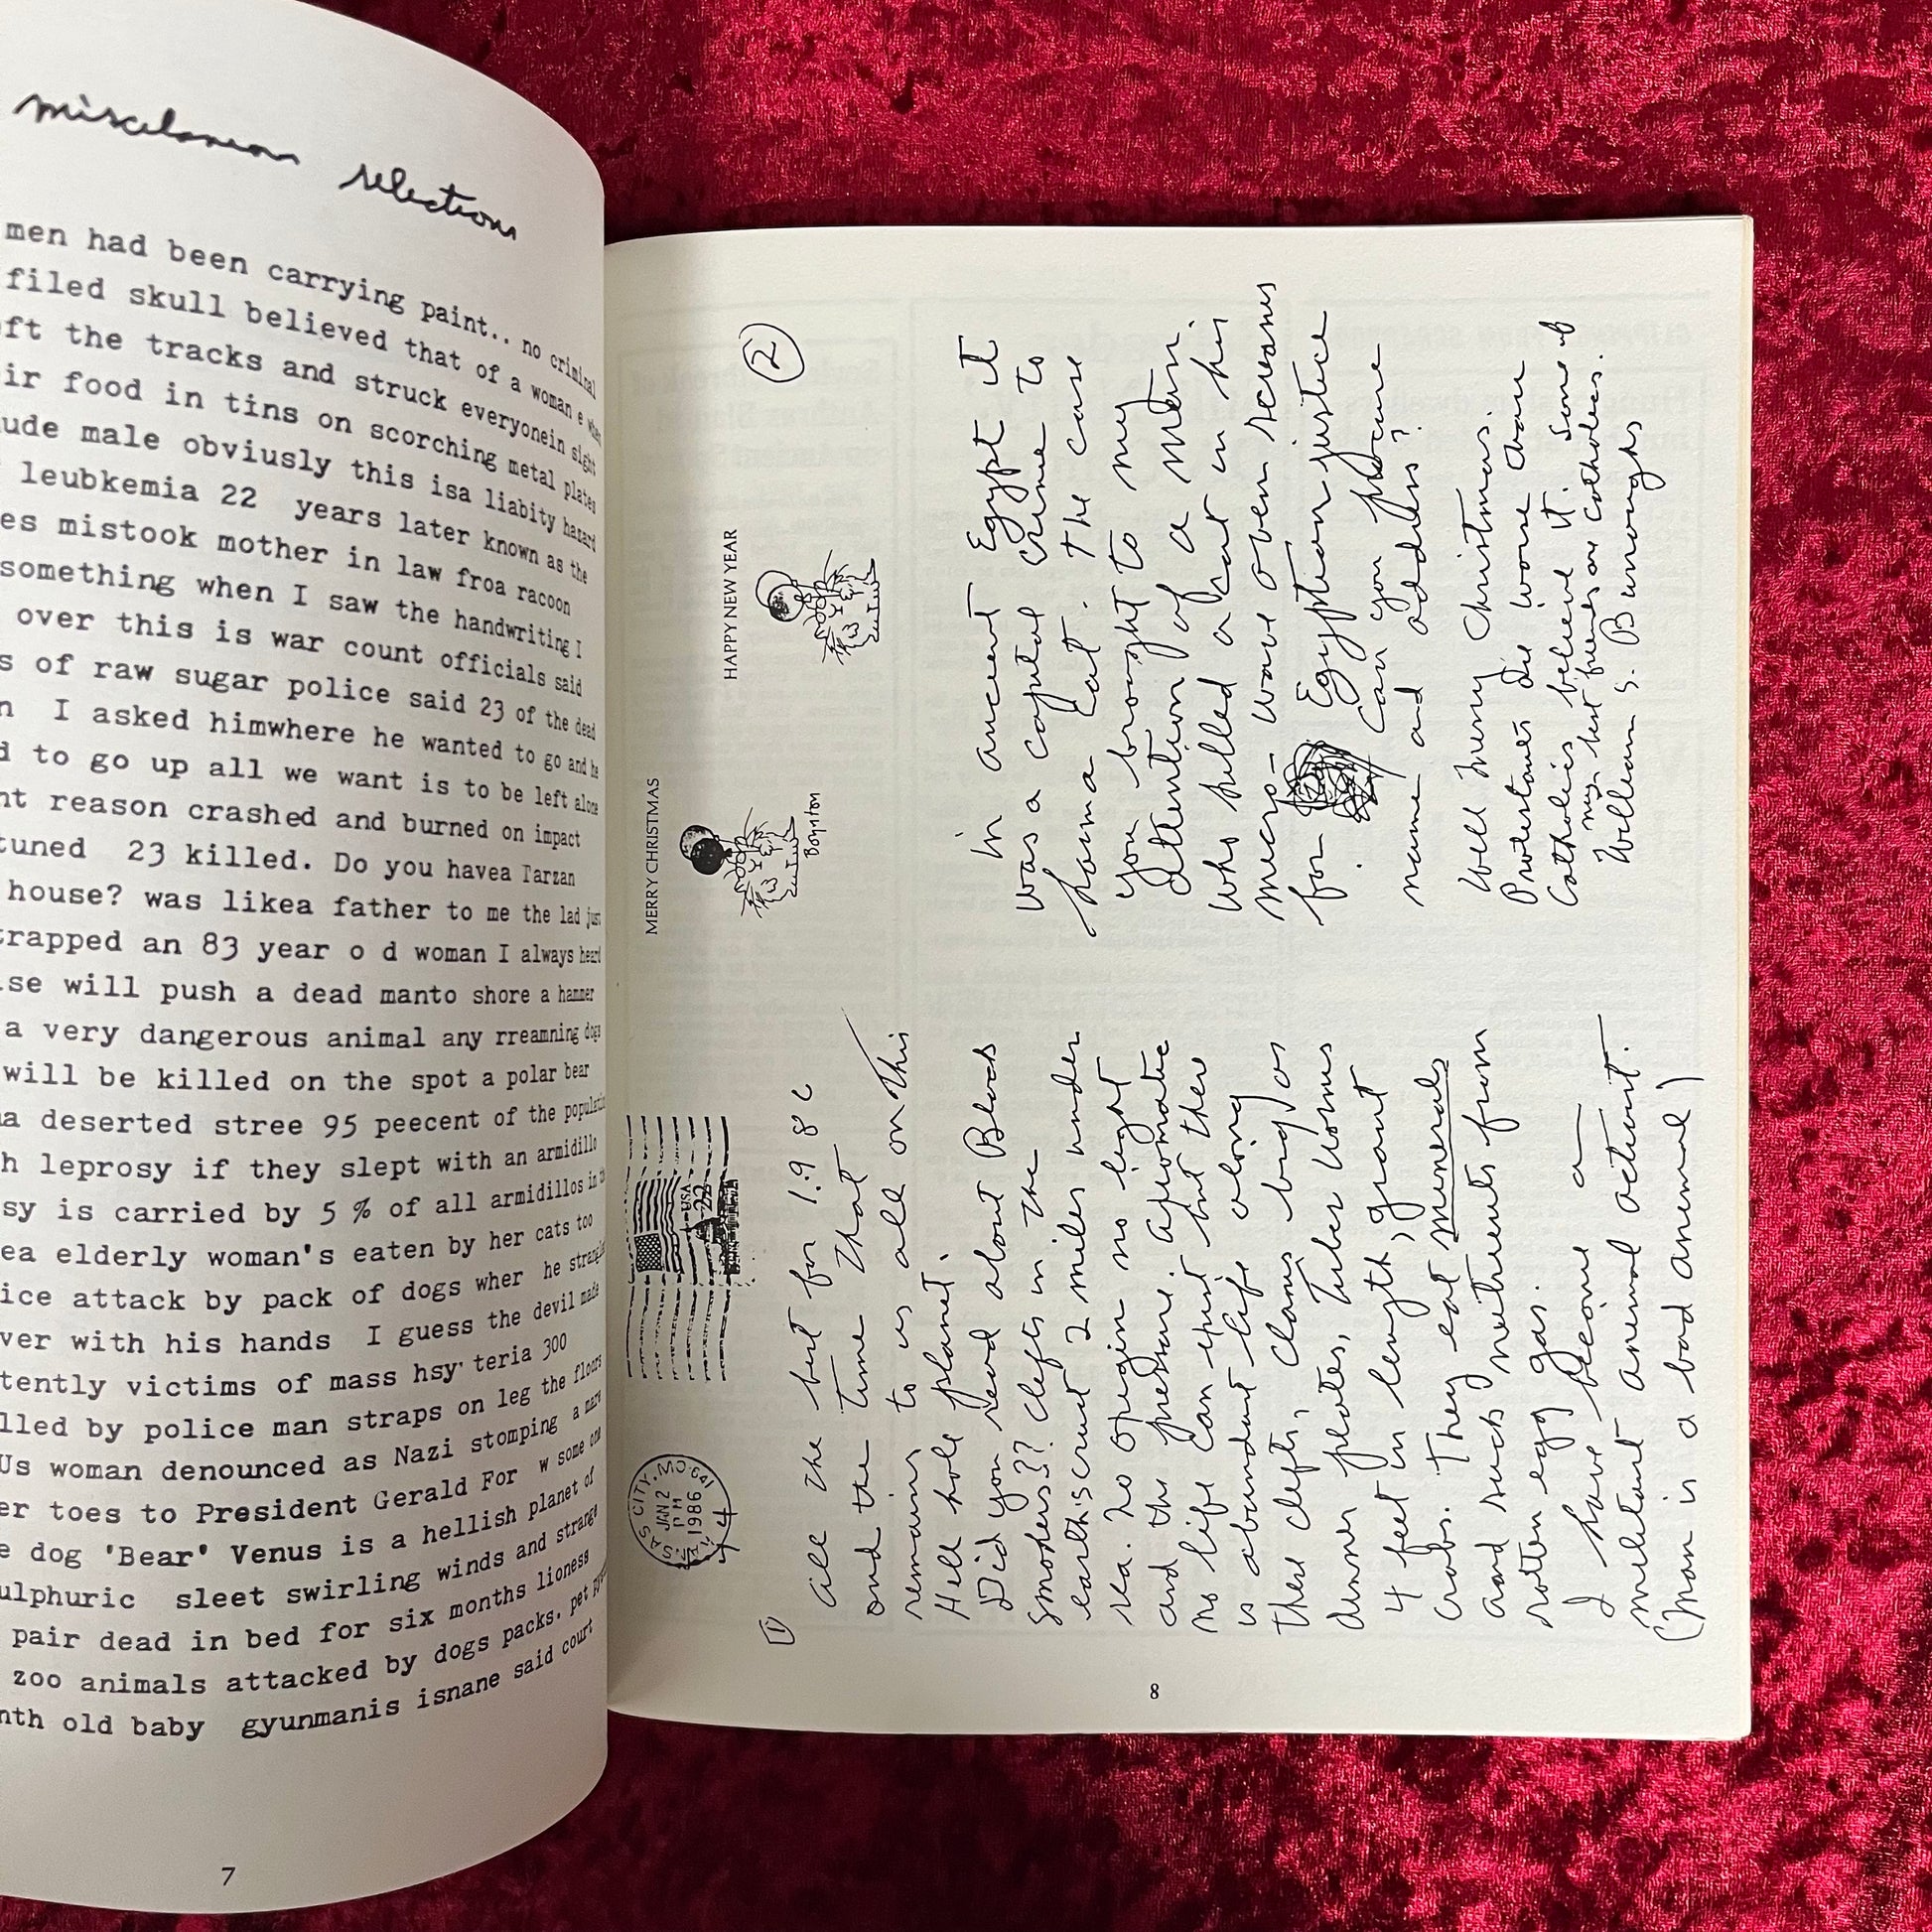 miscelaneous selections
men had been carrying paint.. no criminal
filed skull believed that of a woman e when
ft the tracks and struck everyonein sight
ir food in tins on scorching metal plates
ude male obviusly this isa liabity hazard
leubkemia 22 years later known as the
es mistook mother in law froa racoon
something when I saw the handwriting I
over this is war count officials said
s of raw sugar police said 23 of the dead
n I asked himwhere he wanted to go and he
d to go up all we want is to be left alone
nt reason crashed and burned on impact
tuned 23 killed. Do you havea Tarzan
house? was likea father to me the lad just
trapped an 83 year o d woman I always heard
se will push a dead manto shore a hammer
a very dangerous animal any rreamning dogs
will be killed on the spot a polar bear
a deserted stree 95 peecent of the populatio
h leprosy if they slept with an armidillo
sy is carried by 5 % of all armidillos in the
ea elderly woman's eaten by her cats too
ice attack by pack of dogs wher he strangle
ver with his hands I guess the devil made
tently victims of mass hsy' teria 300
lled by police man straps on leg the floors
Us woman denounced as Nazi stomping a mare
er toes to President Gerald For w some one
e dog 'Bear' Venus is a hellish planet of
ulphuric sleet swirling winds and strange
pair dead in bed for six months lioness
zoo animals attacked by dogs packs. pet
nth old baby gyunmanis isnane said court
7
KANSAS CITY, MO 641
JAN 2
PM
1986
USA 22
1
All the best for 1.9 8 6
and the time that
remains to us all on this
Hell hole planet.
Did you read about Black
Smokers?? Clefts in the
earth's crust 2 miles under
sea. No oxygin no light
and the pressure. Axiomatic
no life can exist but ther
is abundant life along
thes clefts, Clams big as
dinner plates, Tuber Worms
4 feet in length, giant
Crabs. They eat minerals
and suck nutrients from
rotten egg gas.
I have become a
militant animal activist.
(Man is a bad animal)
MERRY CHRISTMAS
HAPPY NEW YEAR
Boynton
2
In ancient Egypt it
was a capital crime to
harma cat. The case
you brought to my
attention of a man
who killed a cat in his
micro-wave oven screams
for Egyptian justice
. Can you procure
name and address?
Well Merry Christmas.
Protestants die worse than
Catholics believe it. Some of
my best friends are catholics.
William S. Burroughs
8